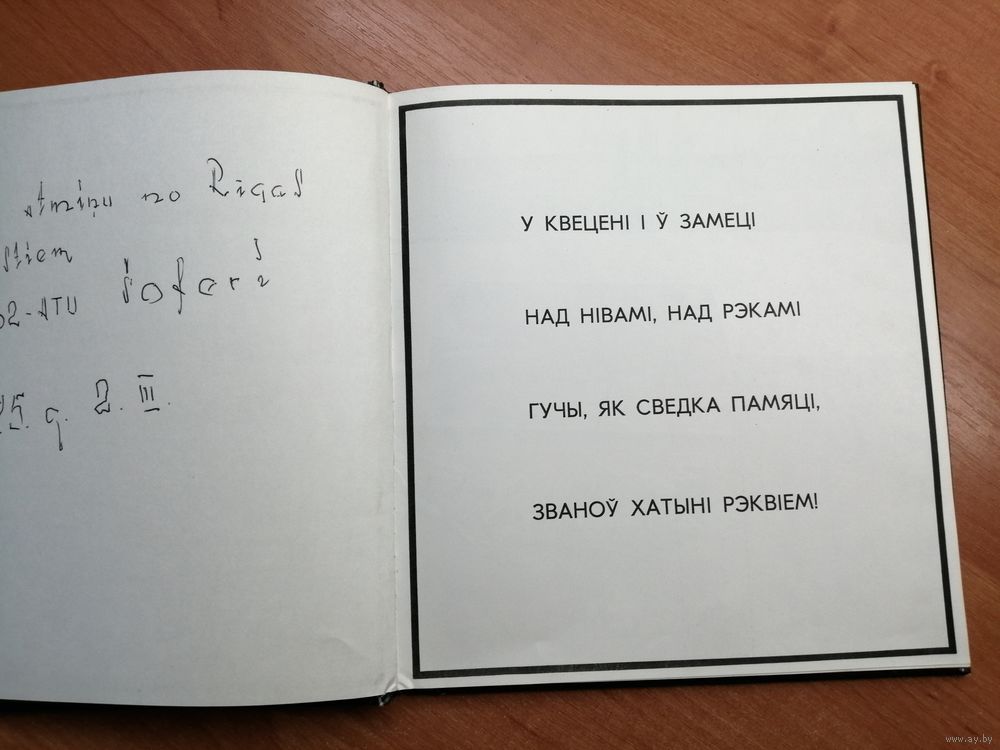 atmiņu no Rīgas
stiem
2-ATU šoferi
75. g. 2. III.
У КВЕЦЕНІ І Ў ЗАМЕЦІ
НАД НІВАМІ, НАД РЭКАМІ
ГУЧЫ, ЯК СВЕДКА ПАМЯЦІ,
ЗВАНОЎ ХАТЫНІ РЭКВІЕМ!
www.ay.by